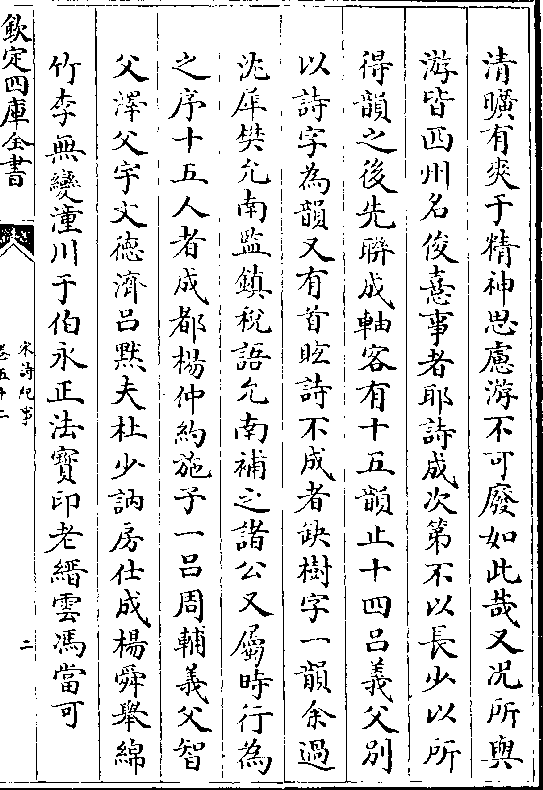 清曠有爽于精神思慮游不可廢如此哉又况所與
游皆西州名俊憙事者耶詩成次第不以長少以所
得韻之後先聯成軸客有十五韻止十四吕義父别
以詩字為韻又有首眩詩不成者缺樹字一韻余過
沈犀樊允南監鎮稅語允南補之諸公又屬時行為
之序十五人者成都楊仲約施子一吕周輔義父智
父澤父宇文德濟吕黙夫杜少訥房仕成楊舜舉綿
竹李無變潼川于伯永正法寳印老縉雲馮當可
欽定四庫全書
宋詩紀事
卷五十二
二